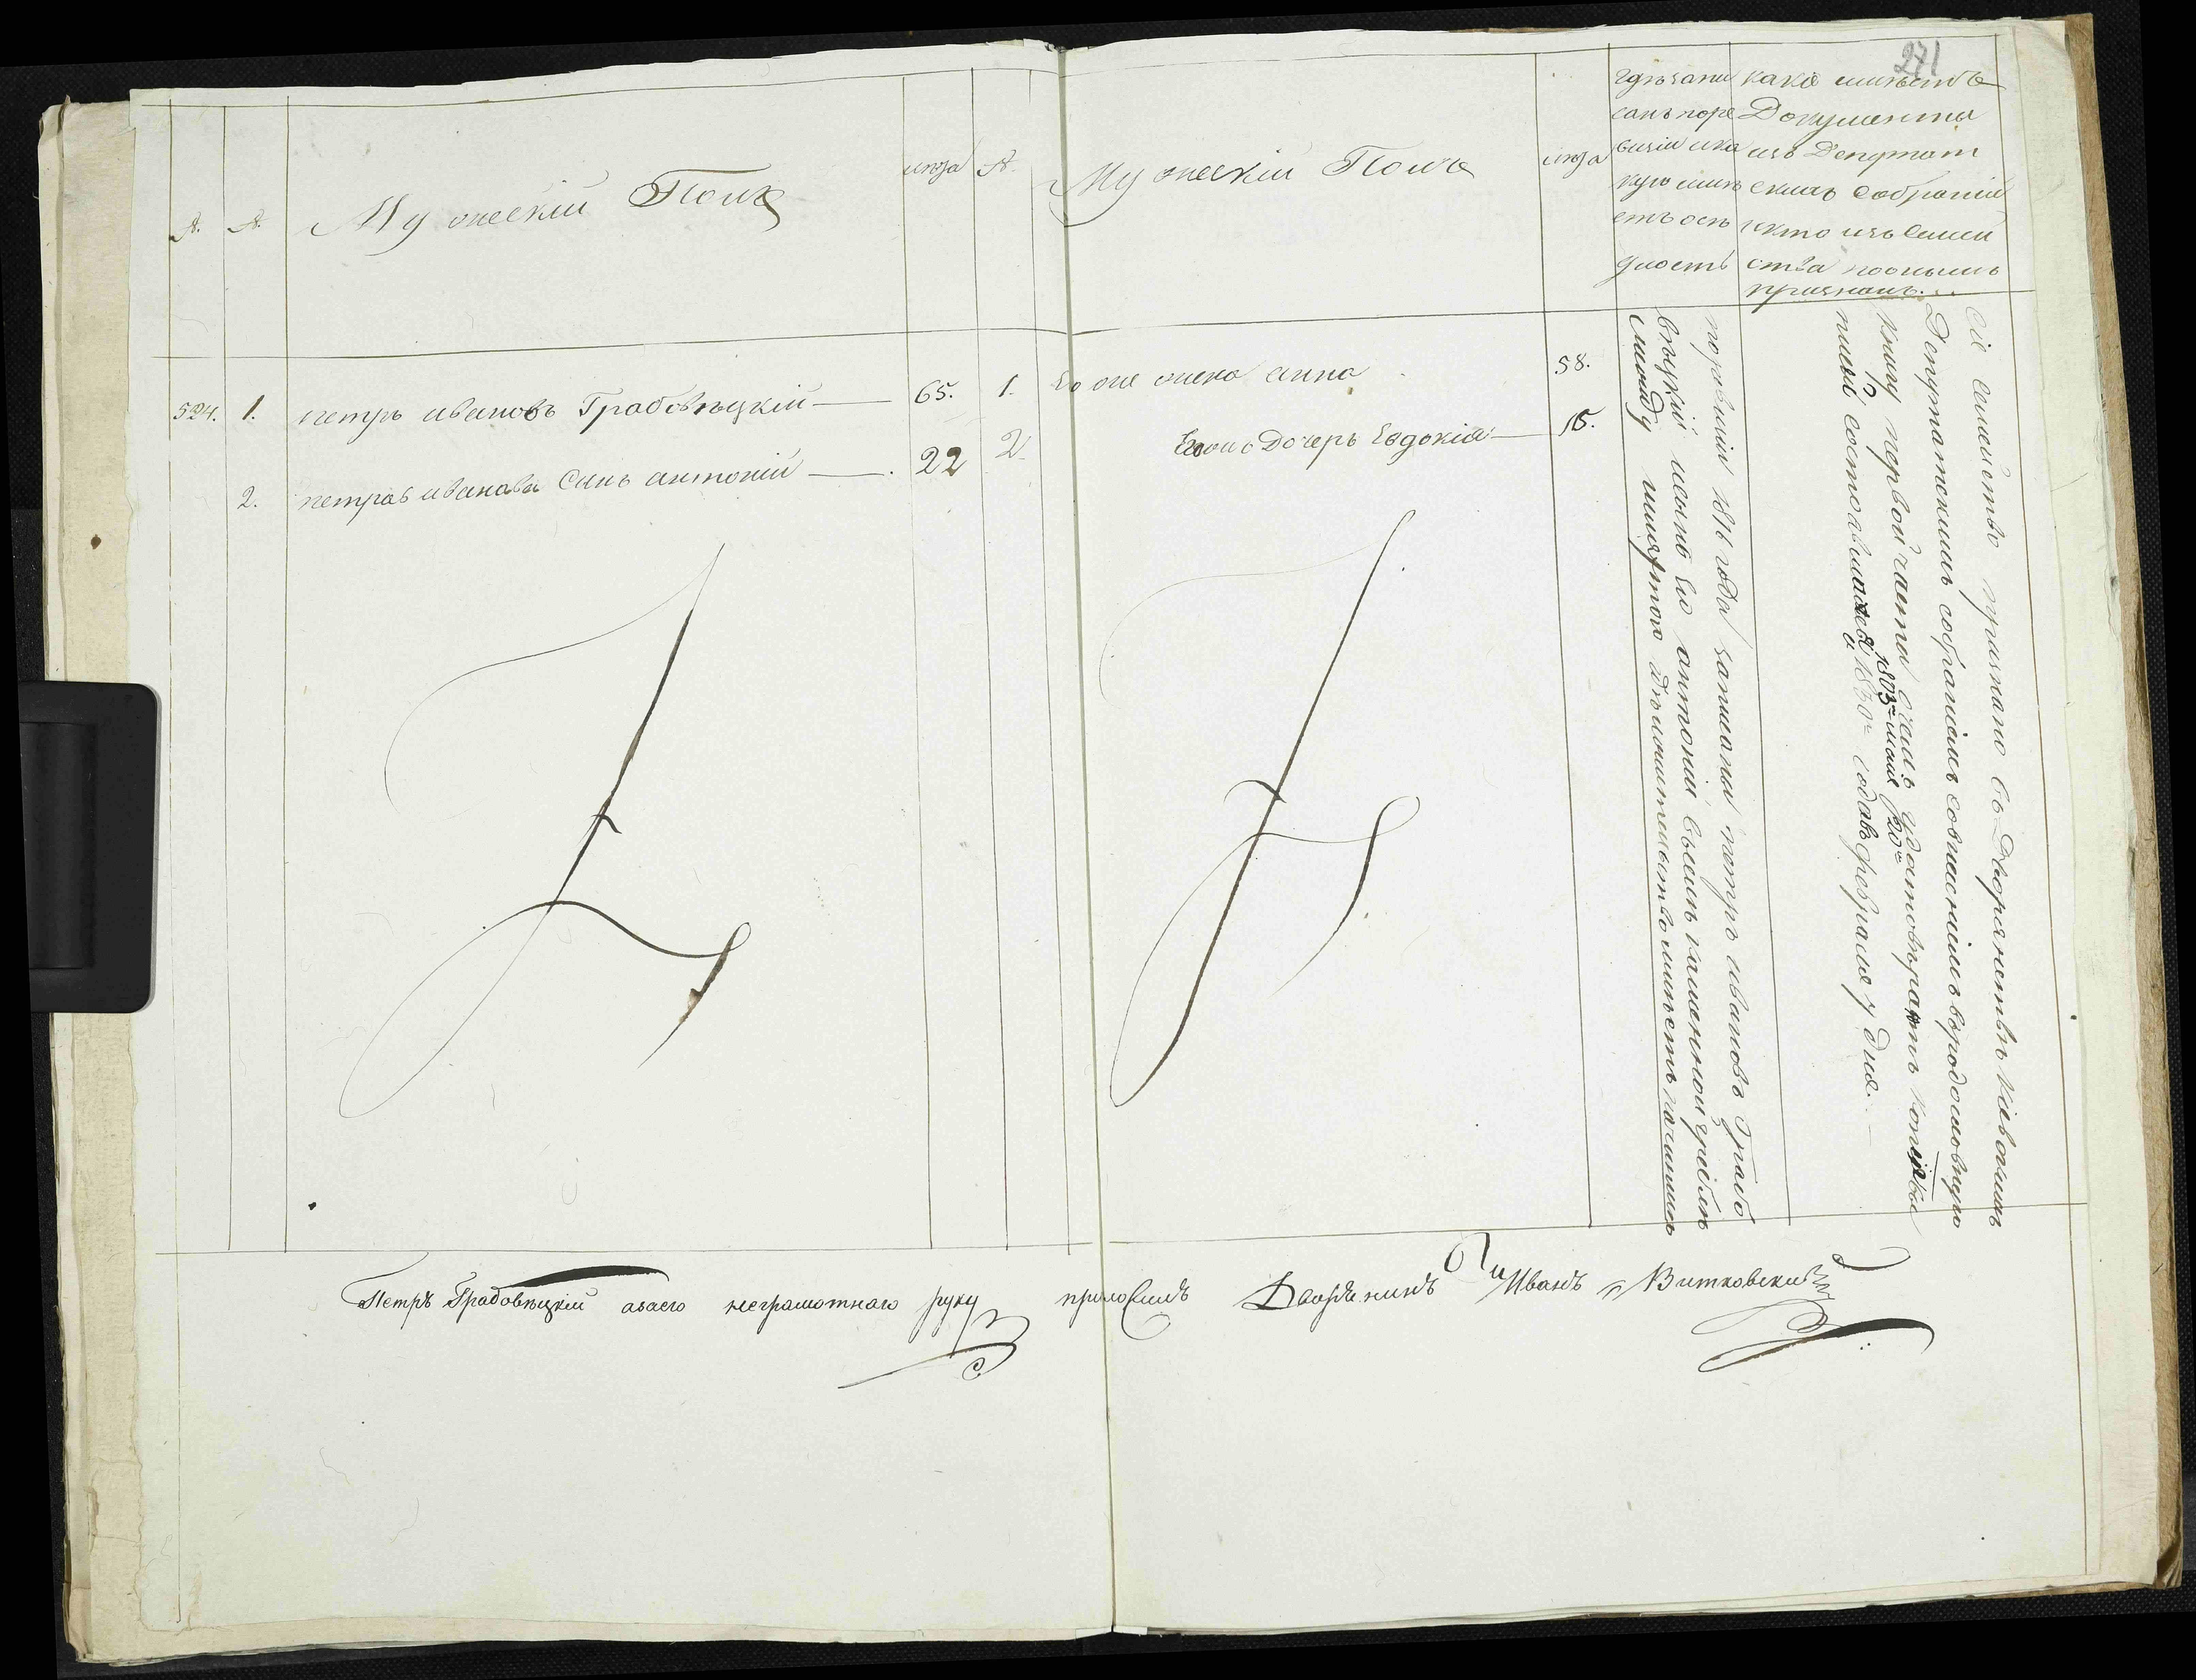 271
№.
№.
Мужескій Полъ
лѣта
№.
Мужескій Полъ
лѣта
гдѣ запи
санъ поре
визіи и ка
кую имѣ
етъ осѣ
длость
какіе имѣетъ
Документы
изъ Депутат
скихъ Собраній
и кто изъ Семей
ства по онымъ
признанъ.
524. 1. петръ ивановъ Грабовѣцкій — 65.
2. петра ивановa Сынъ антоній — 22
1. Его же жена анна 58.
2. Его же Дочерь Евдокія — 15.
по ревизіи 1816 года записаны петръ ивановъ Граб
вѣцкій исынъ его антоній вселѣ каменной греблѣ
Слѣду шляхтою
Сіе Семейство признано въ Дворянствѣ Кіевскимъ
Депутатскимъ собраніемъ совнесеніемъ вродословную
книгу первой части
1803го мая 20го
составил 1830го года февраля 7 дня.
Петръ Грабовѣцкій азаего неграмотнаго руку приложилъ Дворянинъ Иванъ Витковскій